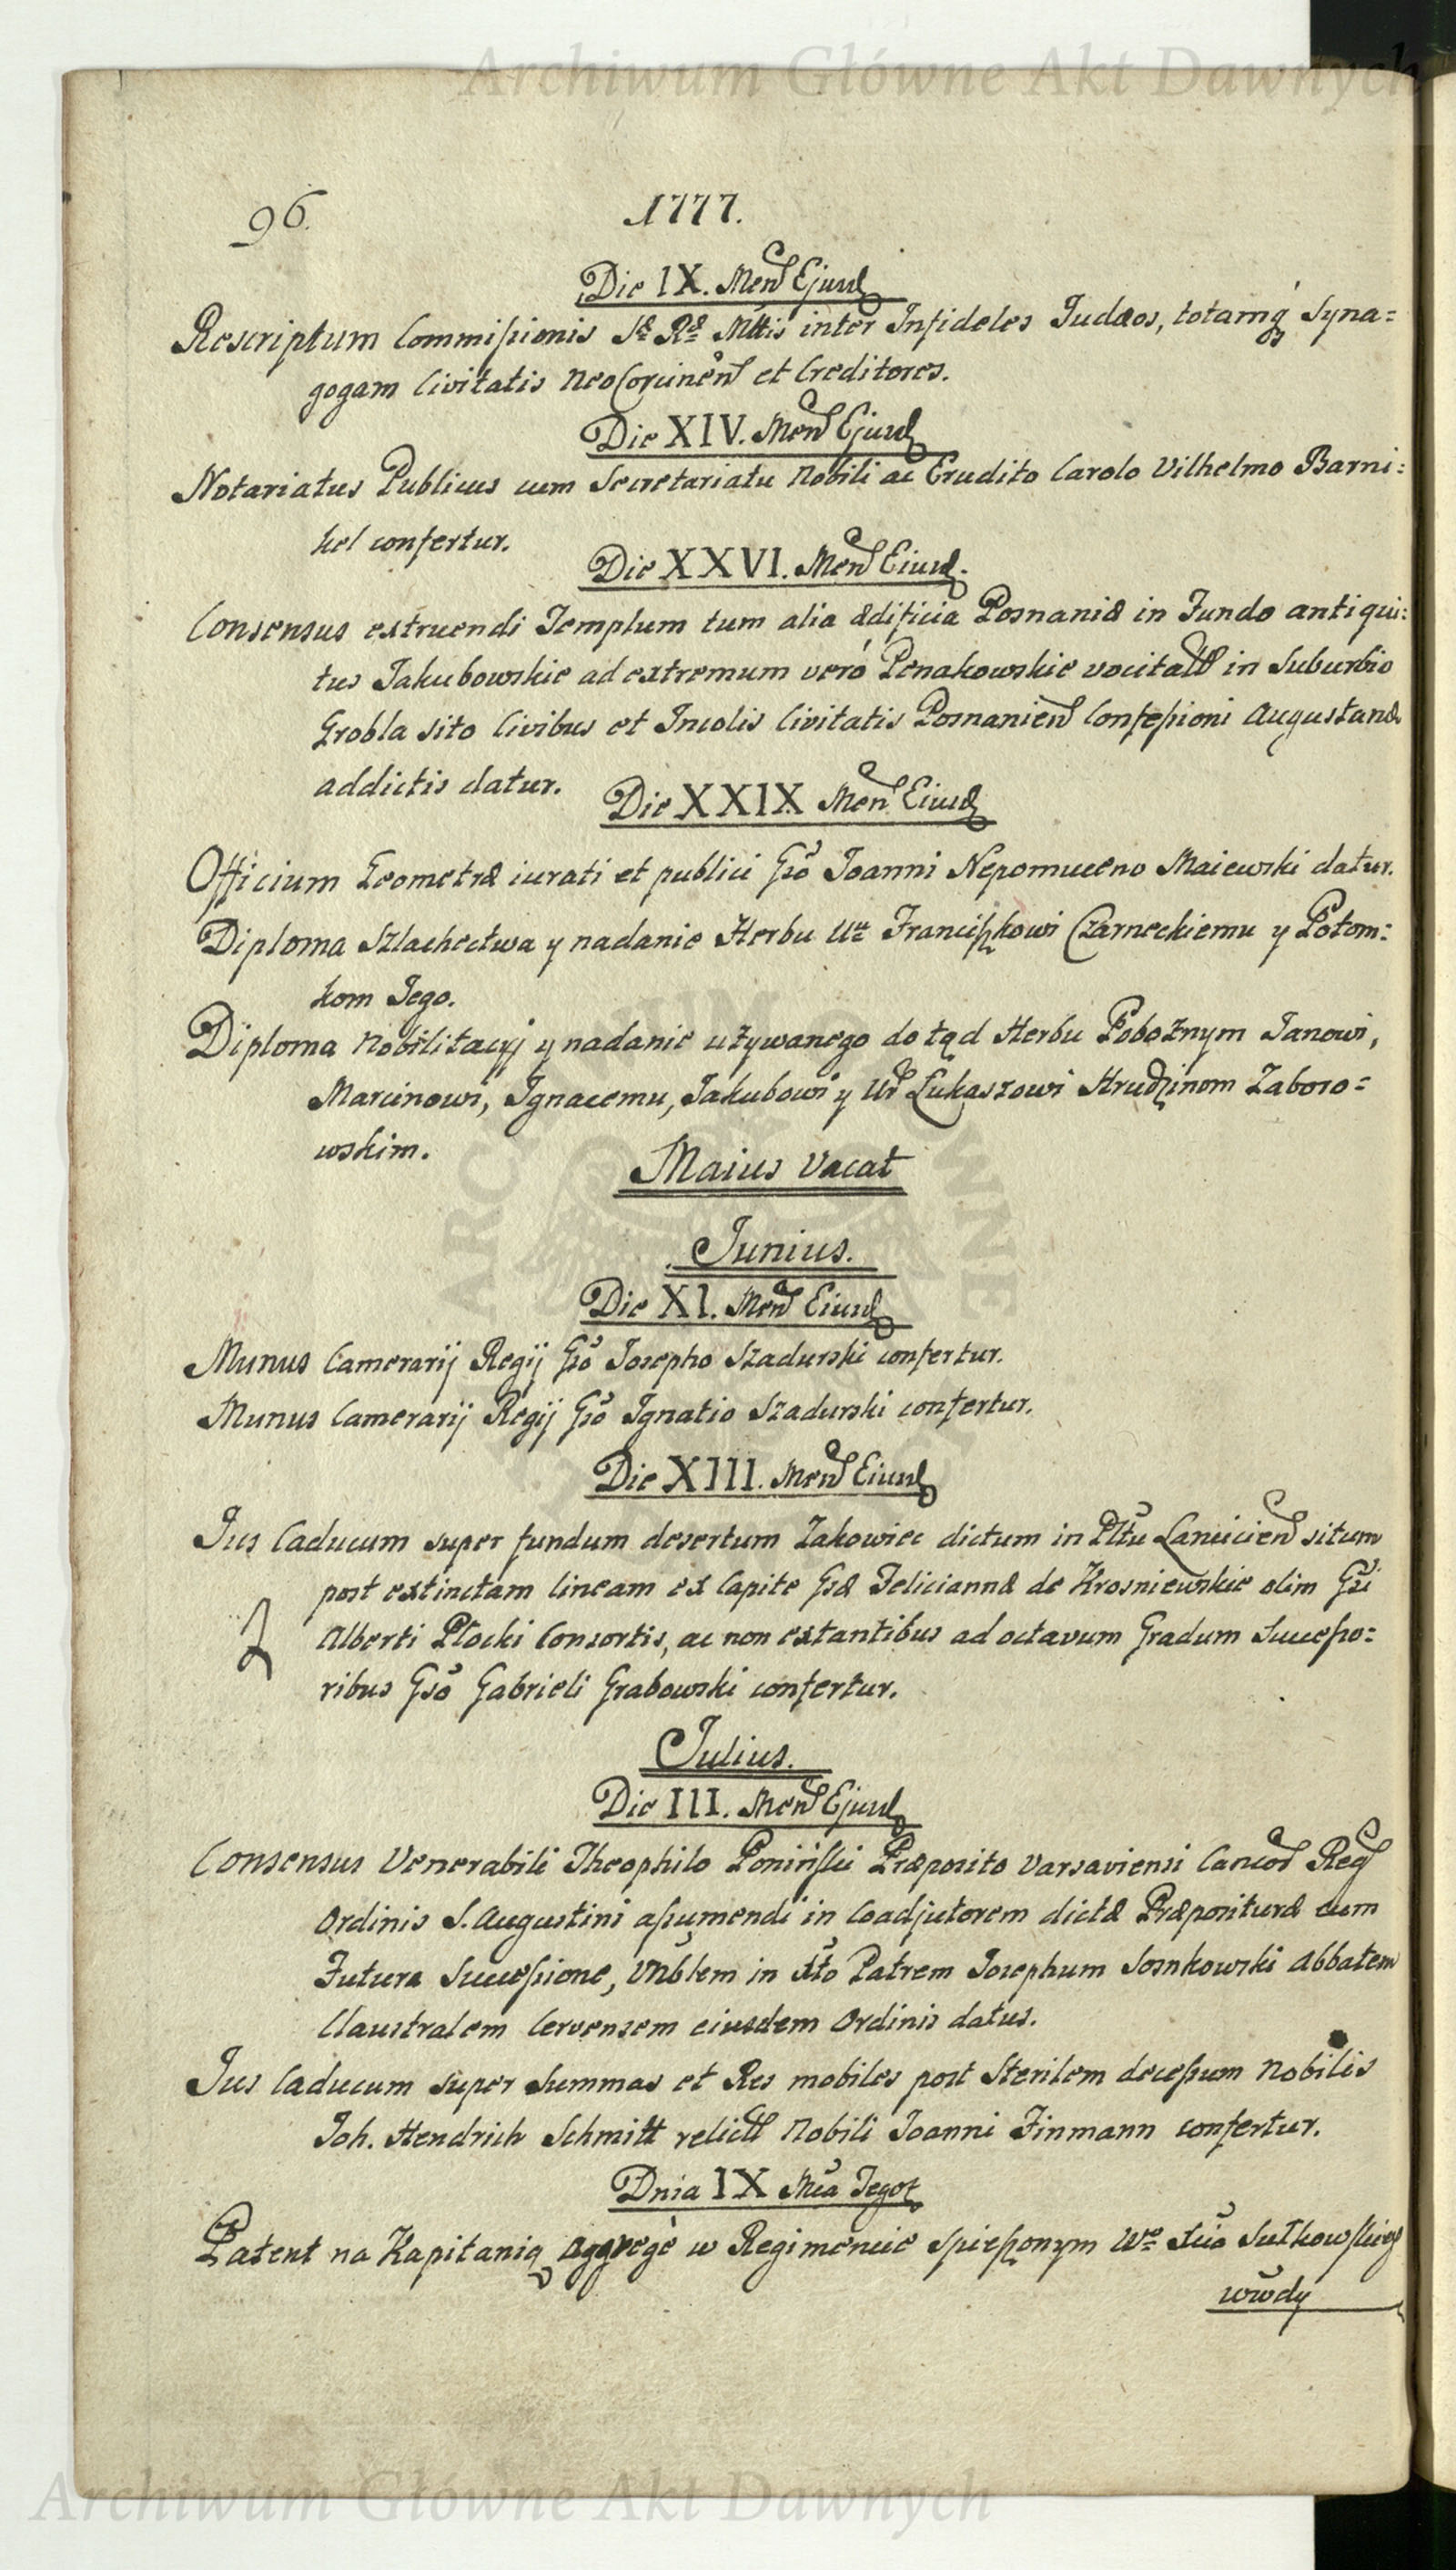 Archiwum Główne Akt Dawnych
96.
1777.
Die IX. Men Ejusd
Rescriptum Commissionis Sæ Ræ Mttis inter Infideles Judæos, totamq́ Syna=
gogam Civitatis NeoCorcinen et Creditores.
Die XIV. Men Ejusd
Notariatus Publicus cum Secretariatu Nobili ac Erudito Carolo Vilhelmo Barni=
kel confertur.
Die XXVI. Men Eiusd.
Consensus extruendi Templum tum alia ædificia Posnaniæ in Fundo antiqui=
tus Jakubowskie ad extremum veró Penakowskie vocitatt in Suburbio
Grobla sito Civibus et Incolis Civitatis Posnanien Confessioni Augustanæ
addictis datur.
Die XXIX Men Eiusd
Officium Geometræ iurati et publici Gso Joanni Nepomuceno Maiewski datur.
Diploma Szlachectwa y nadanie Herbu Ur Franciszkowi Czarneckiemu y Potom=
kom Jego.
Diploma Nobilitacyi y nadanie używanego do tąd Herbu Pobożnym Janowi,
Marcinowi, Ignacemu, Jakubowi y Ur Łukaszowi Hrudzinom Zaboro=
wskim.
Maius Vacat
Junius.
Die XI. Men Eiusd
Munus Camerarij Regij Gso Josepho Szadurski confertur.
Munus Camerarij Regij Gso Ignatio Szadurski confertur.
Die XIII. Men Eiusd
Jus Caducum super fundum desertum Zakowiec dictum in Pltu Lancicien situm
post extinctam lineam ex Capite Gsæ Feliciannæ de Krosniewskie olim Gsi
Alberti Płocki Consortis, ac non extantibus ad octavum Gradum Successo=
ribus Gso Gabrieli Grabowski confertur.
Julius.
Die III. Men Ejusd
Consensus Venerabili Theophilo Poniński Præposito Varsaviensi Canco Reg
Ordinis S. Augustini assumendi in Coadjutorem dictæ Præposituræ cum
Futura Successione, Vnblem in Xto Patrem Josephum Sosnkowski Abbatem
Claustralem Cervensem eiusdem Ordinis datus.
Jus Caducum super Summas et Res mobiles post Sterilem decessum Nobilis
Joh. Hendrich Schmitt relictt Nobili Joanni Finmann confertur.
Dnia IX Mca Tegoż
Patent na Kapitanią Aggregè w Regimencie Spieszonym Wo Sułkowskieg
wwdy
Archiwum Główne Akt Dawnych